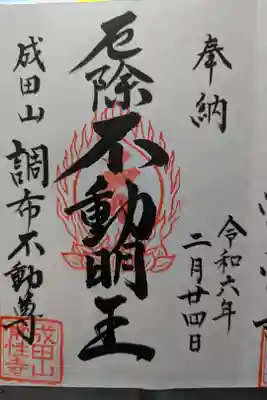 奉納
令和六年
二月廿四日
厄除不動明王
成田山
調布不動尊
成田山
常性寺